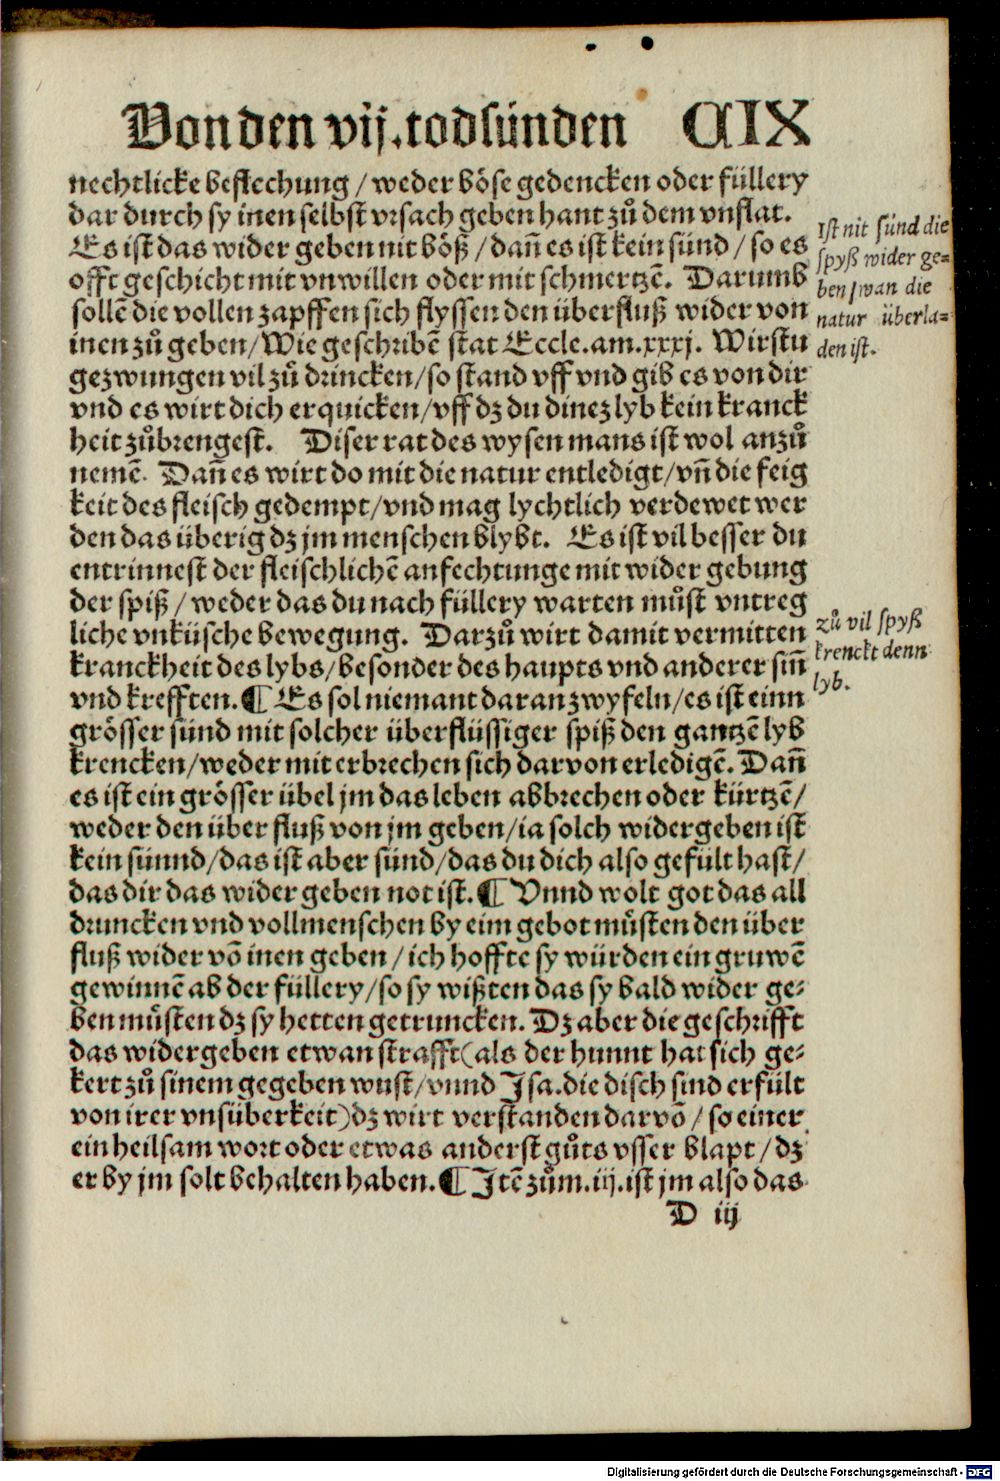 Von den vij. todsünden CIX
nechtlicke befleckung / weder böse gedencken oder füllery
dar durch sy inen selbst vrsach geben hant zů dem vnflat.
Es ist das wider geben nit böß / dañ es ist kein sünd / so es
offt geschicht mit vnwillen oder mit schmertzē. Darumb
sollē die vollen zapffen sich flyssen den überfluß wider von
inen zů geben / Wie geschribē stat Eccle. am. xxxj. Wirstu
gezwungen vil zů drincken / so stand vff vnd gib es von dir
vnd es wirt dich erquicken / vff dz du dinez lyb kein kranck
heit zůbrengest. Diser rat des wysen mans ist wol anzů
nemē. Dañ es wirt do mit die natur entledigt / vñ die feig
keit des fleisch gedempt / vnd mag lychtlich verdewet wer
den das überig dz jm menschen blybt. Es ist vil besser du
entrinnest der fleischlichē anfechtunge mit wider gebung
der spiß / weder das du nach füllery warten můst vntreg
liche vnküsche bewegung. Darzů wirt damit vermitten
kranckheit des lybs / besonder des haupts vnd anderer siñ
vnd krefften. ¶ Es sol niemant daran zwyfeln / es ist einn
grösser sünd mit solcher überflüssiger spiß den gantzē lyb
krencken / weder mit erbrechen sich darvon erledigē. Dañ
es ist ein grösser übel jm das leben abbrechen oder kürtzē /
weder den über fluß von jm geben / ia solch widergeben ist
kein sünnd / das ist aber sünd / das du dich also gefült hast /
das dir das wider geben not ist. ¶ Vnnd wolt got das all
druncken vnd vollmenschen by eim gebot můsten den über
fluß wider vō inen geben / ich hoffte sy würden ein gruwē
gewinnē ab der füllery / so sy wißten das sy bald wider ge⸗
ben můsten dz sy hetten getruncken. Dz aber die geschrifft
das widergeben etwan strafft (als der hunnt hat sich ge⸗
kert zů sinem gegeben wust / vnnd Isa. die disch sind erfült
von irer vnsüberkeit) dz wirt verstanden darvō / so einer
ein heilsam wort oder etwas anderst gůts vsser blapt / dz
er by jm solt behalten haben. ¶ Itē zům. iij. ist jm also das
D iij
Ist nit sünd die
spyß wider ge⸗
ben / wan die
natur überla⸗
den ist.
zů vil spyß
krenckt denn
lyb.
Digitalisierung gefördert durch die Deutsche Forschungsgemeinschaft - DFG